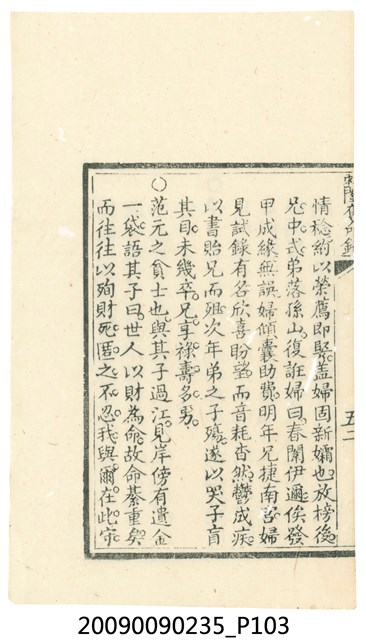 情稔約以榮膺即娶蓋婦固新孀也放榜後
兄中式弟落孫山復誑婦曰春闈伊邇俟發
甲成緣無誤婦傾囊助費明年兄捷南宮婦
見試錄有名欣喜盼望而音耗杳然鬱成疾
以書貽兄而殂次年弟之子殤遂以哭子盲
其目未幾卒兄享祿壽多男
○范元之貧士也與其子過江見岸傍有遺金
一袋語其子曰世人以財為命故命綦重矣
而往往以殉財死匿之不忍我與爾在此守
五二
20090090235_P103